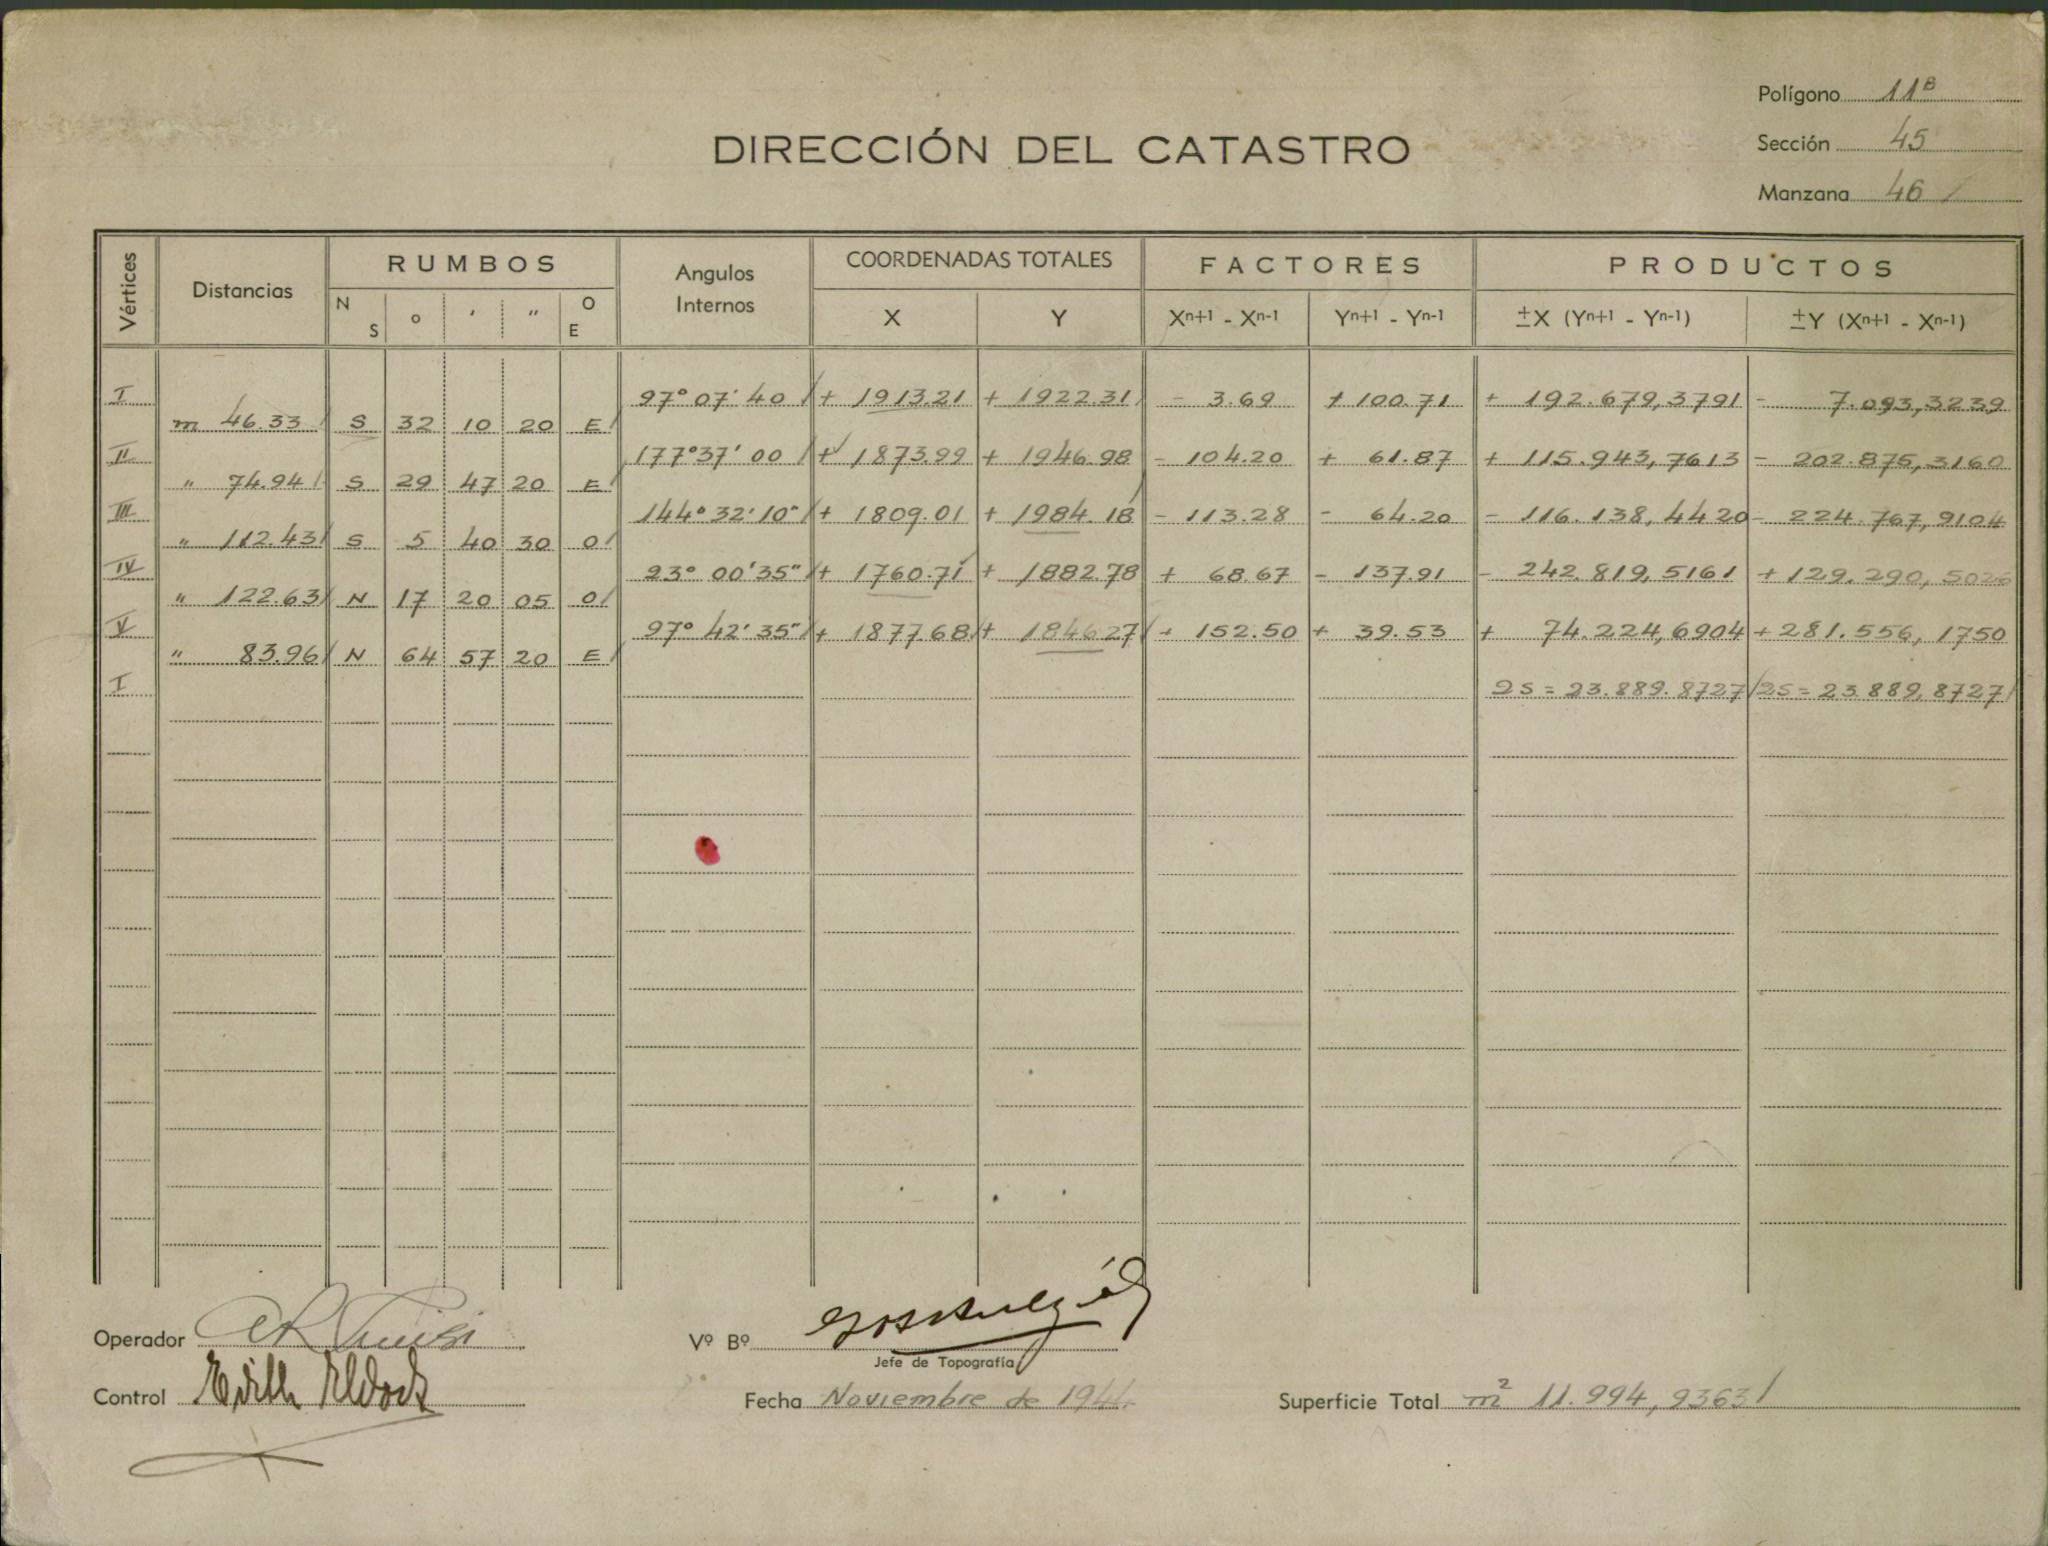 Polígono 11B
DIRECCIÓN DEL CATASTRO
Sección 45
Manzana 46
Vértices Distancias RUMBOS Angulos Internos COORDENADAS TOTALES FACTORES PRODUCTOS
N S ° ′ ″ O E X Y Xn+1 - Xn-1 Yn+1 - Yn-1 ±X (Yn+1 - Yn-1) ±Y (Xn+1 - Xn-1)
I 97° 07' 40 + 1913.21 + 1922.31 - 3.69 + 100.71 + 192.679,3791 - 7.093,3239
m 46.33 S 32 10 20 E
II 177° 37' 00 + 1873.99 + 1946.98 - 104.20 + 61.87 + 115.943,7613 - 202.875,3160
" 74.94 S 29 47 20 E
III 144° 32' 10" + 1809.01 + 1984.18 - 113.28 - 64.20 - 116.138,4420 - 224.767,9104
" 112.43 S 5 40 30 O
IV 23° 00' 35" + 1760.71 + 1882.78 + 68.67 - 137.91 - 242.819,5161 + 129.290,5026
" 122.63 N 17 20 05 O
V 97° 42' 35" + 1877.68 + 1846.27 + 152.50 + 39.53 + 74.224,6904 + 281.556,1750
" 83.96 N 64 57 20 E
I 2S = 23.889.8727 2S = 23.889,8727
Operador
Vº Bº
Jefe de Topografía
Control Edith
Fecha Noviembre de 1944.
Superficie Total m² 11.994,9363